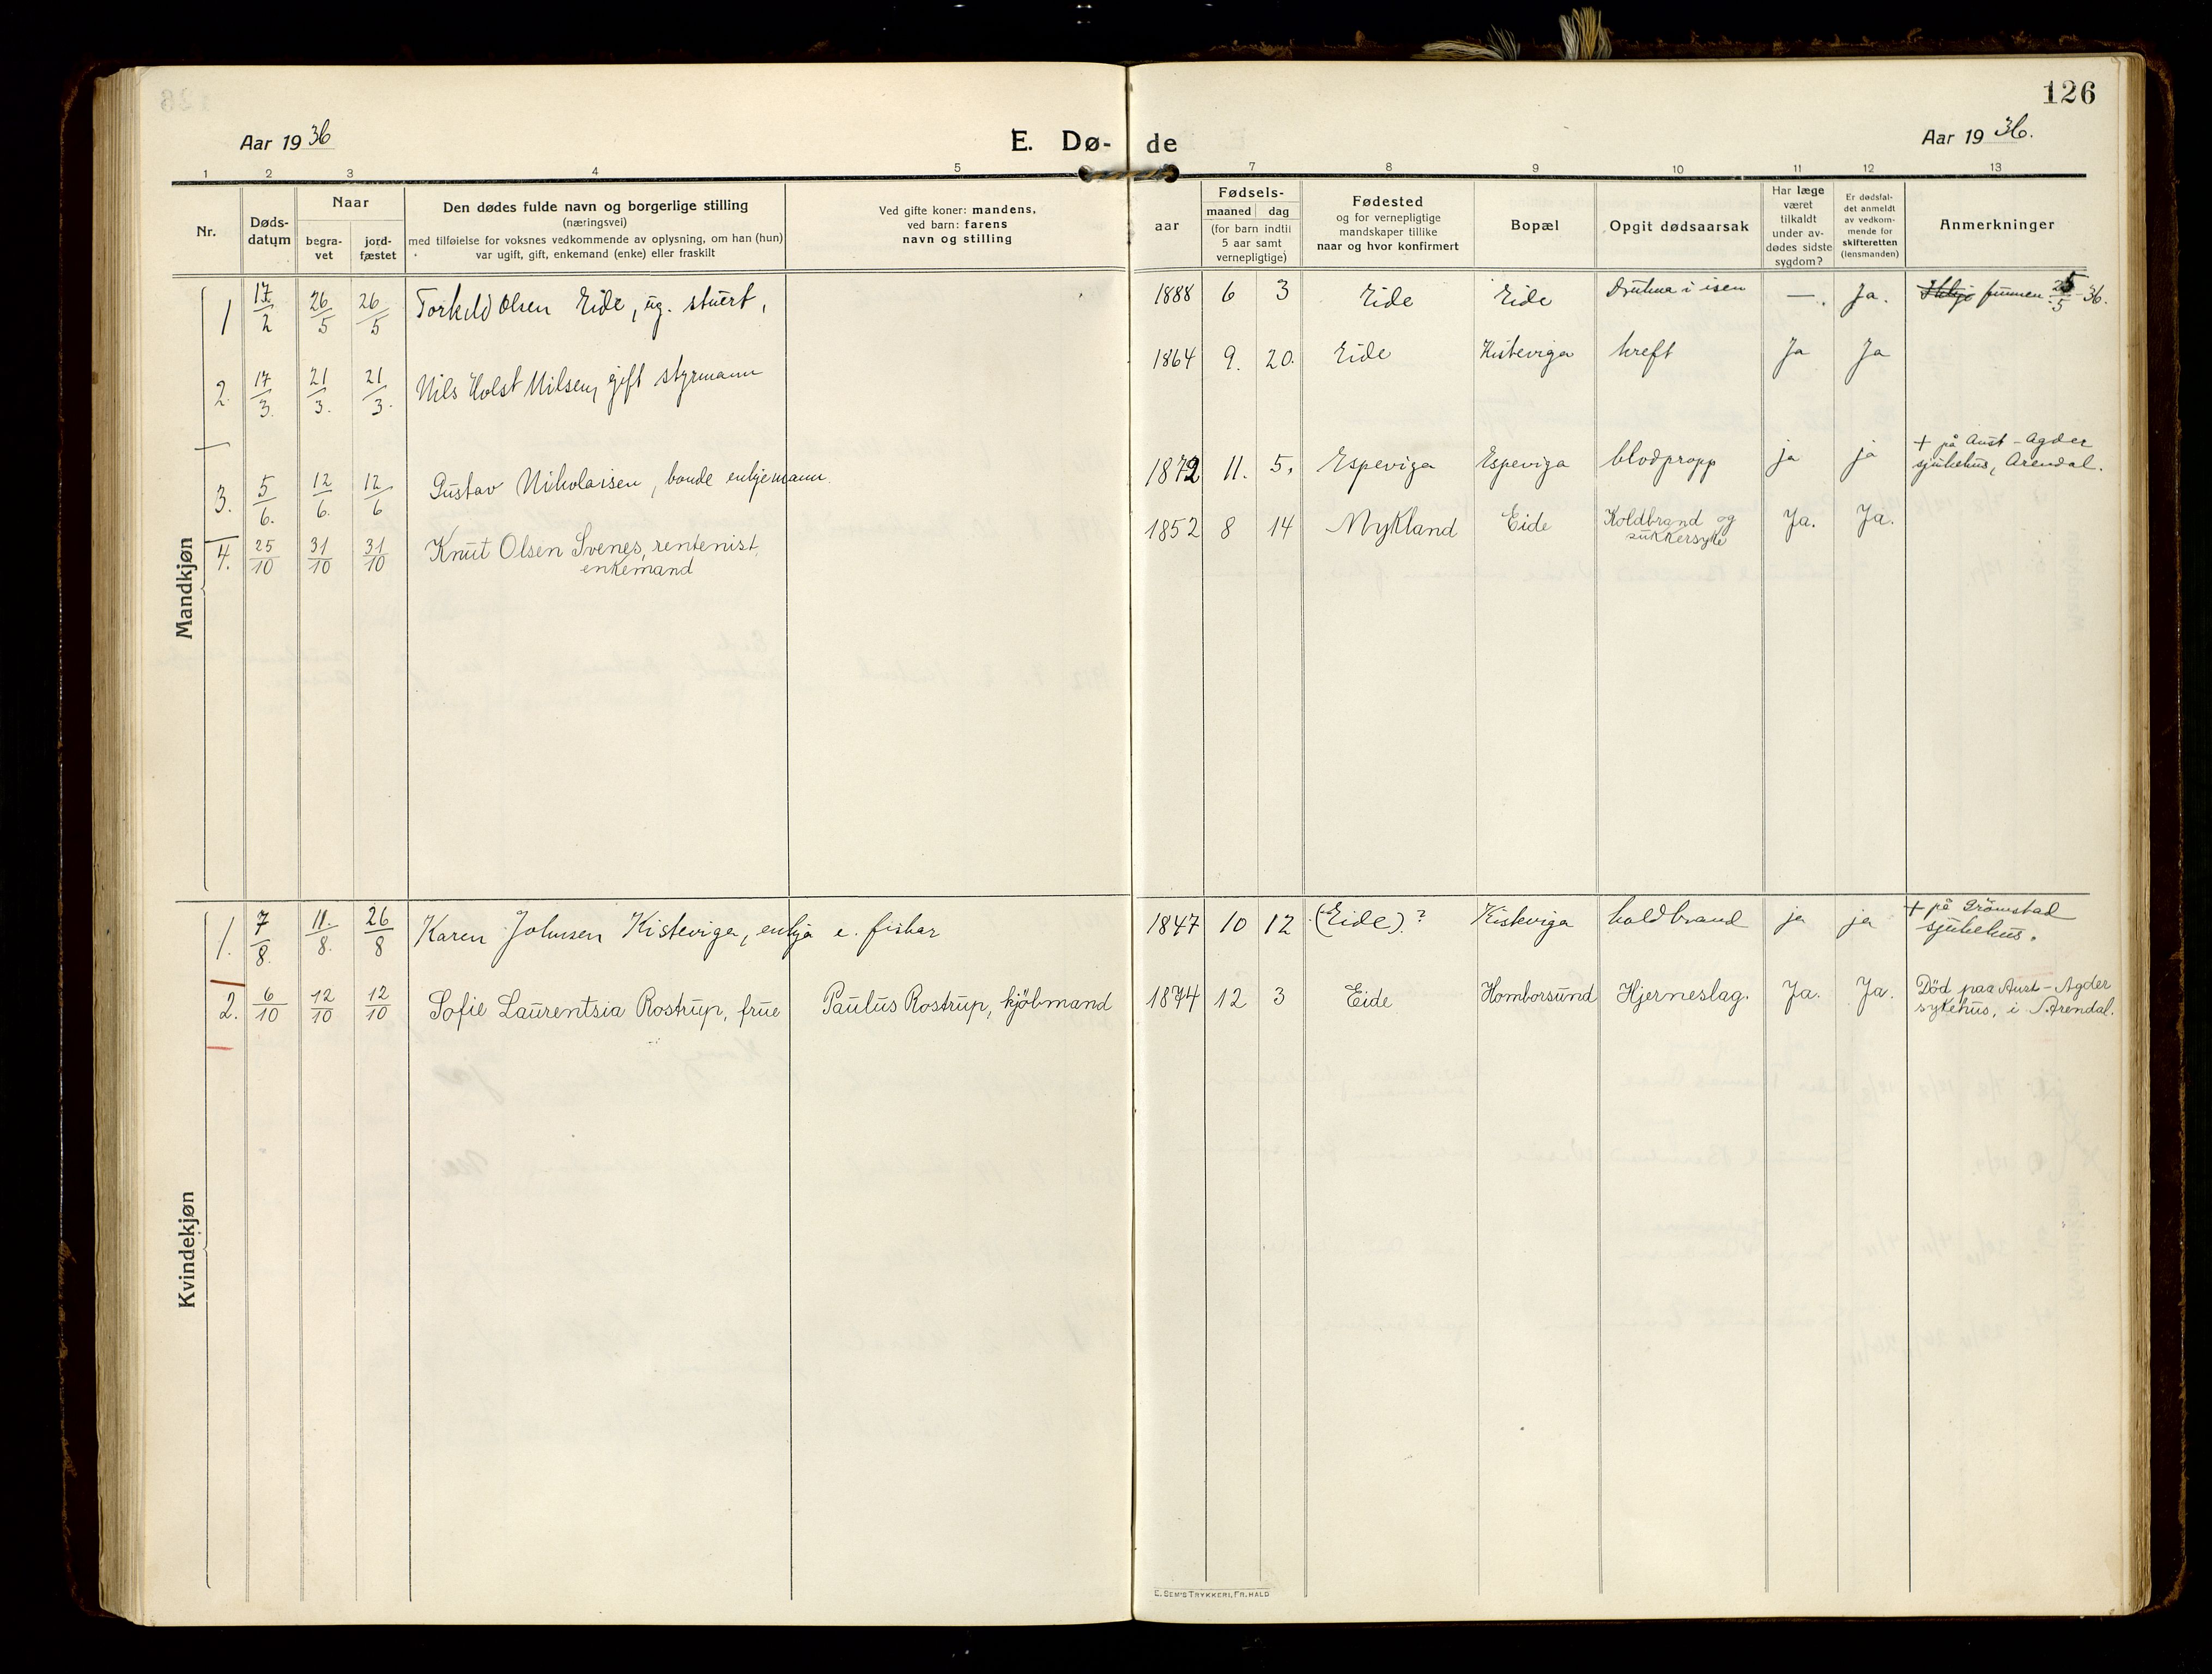 126
Aar 1936
E. Dø-de
Aar 1936.
1 2 3 4 5 7 8 9 10 11 12 13
Nr.
Døds-datum
Naar
begra-vet
jord-fæstet
Den dødes fulde navn og borgerlige stilling
(næringsvei)
med tilføielse for voksnes vedkommende av oplysning, om han (hun)
var ugift, gift, enkemand (enke) eller fraskilt
Ved gifte koner: mandens,
ved barn: farens
navn og stilling
Fødsels-
aar
maaned dag
(for barn indtil
5 aar samt
vernepligtige)
Fødested
og for vernepligtige
mandskaper tillike
naar og hvor konfirmert
Bopæl
Opgit dødsaarsak
Har læge
været
tilkaldt
under av-
dødes sidste
sygdom?
Er dødsfal-
det anmeldt
av vedkom-
mende for
skifteretten
(lensmanden)
Anmerkninger
Mandkjøn
1 17/2 26/5 26/5 Torkild Olsen Eide, ug. stuert, 1888 6 3 Eide Eide Drukna i isen —. Ja. funnen 25/5 36.
2. 17/3. 21/3. 21/3. Nils Holst Nilsen, gift styrmann 1864 9. 20. Eide Kisteviga kreft Ja Ja
3. 5/6. 12/6. 12/6 Gustav Nikolaisen, bonde enkjemann. 1872 11. 5. Espeviga Espeviga blodpropp ja ja + på Aust-Agder
sjukehus, Arendal.
4. 25/10 31/10 31/10 Knut Olsen Svenes, rentenist, 1852 8 14 Mykland Eide Koldbrand og Ja. Ja.
enkemand sukkersyke
Kvindekjøn
1. 7/8. 11./8. 26/8 Karen Johnsen Kisteviga, enkja e. fiskar 1847 10 12 (Eide).? Kisteviga koldbrand ja ja + på Grömstad
sjukehus.
2. 6/10 12/10 12/10 Sofie Laurentsia Rostrup, frue Paulus Rostrup, kjöbmand 1874 12 3 Eide Homborsund Hjerneslag. Ja. Ja. Död paa Aust-Agder
sykehus, i Arendal.
E. SEM'S TRYKKERI, FR.HALD